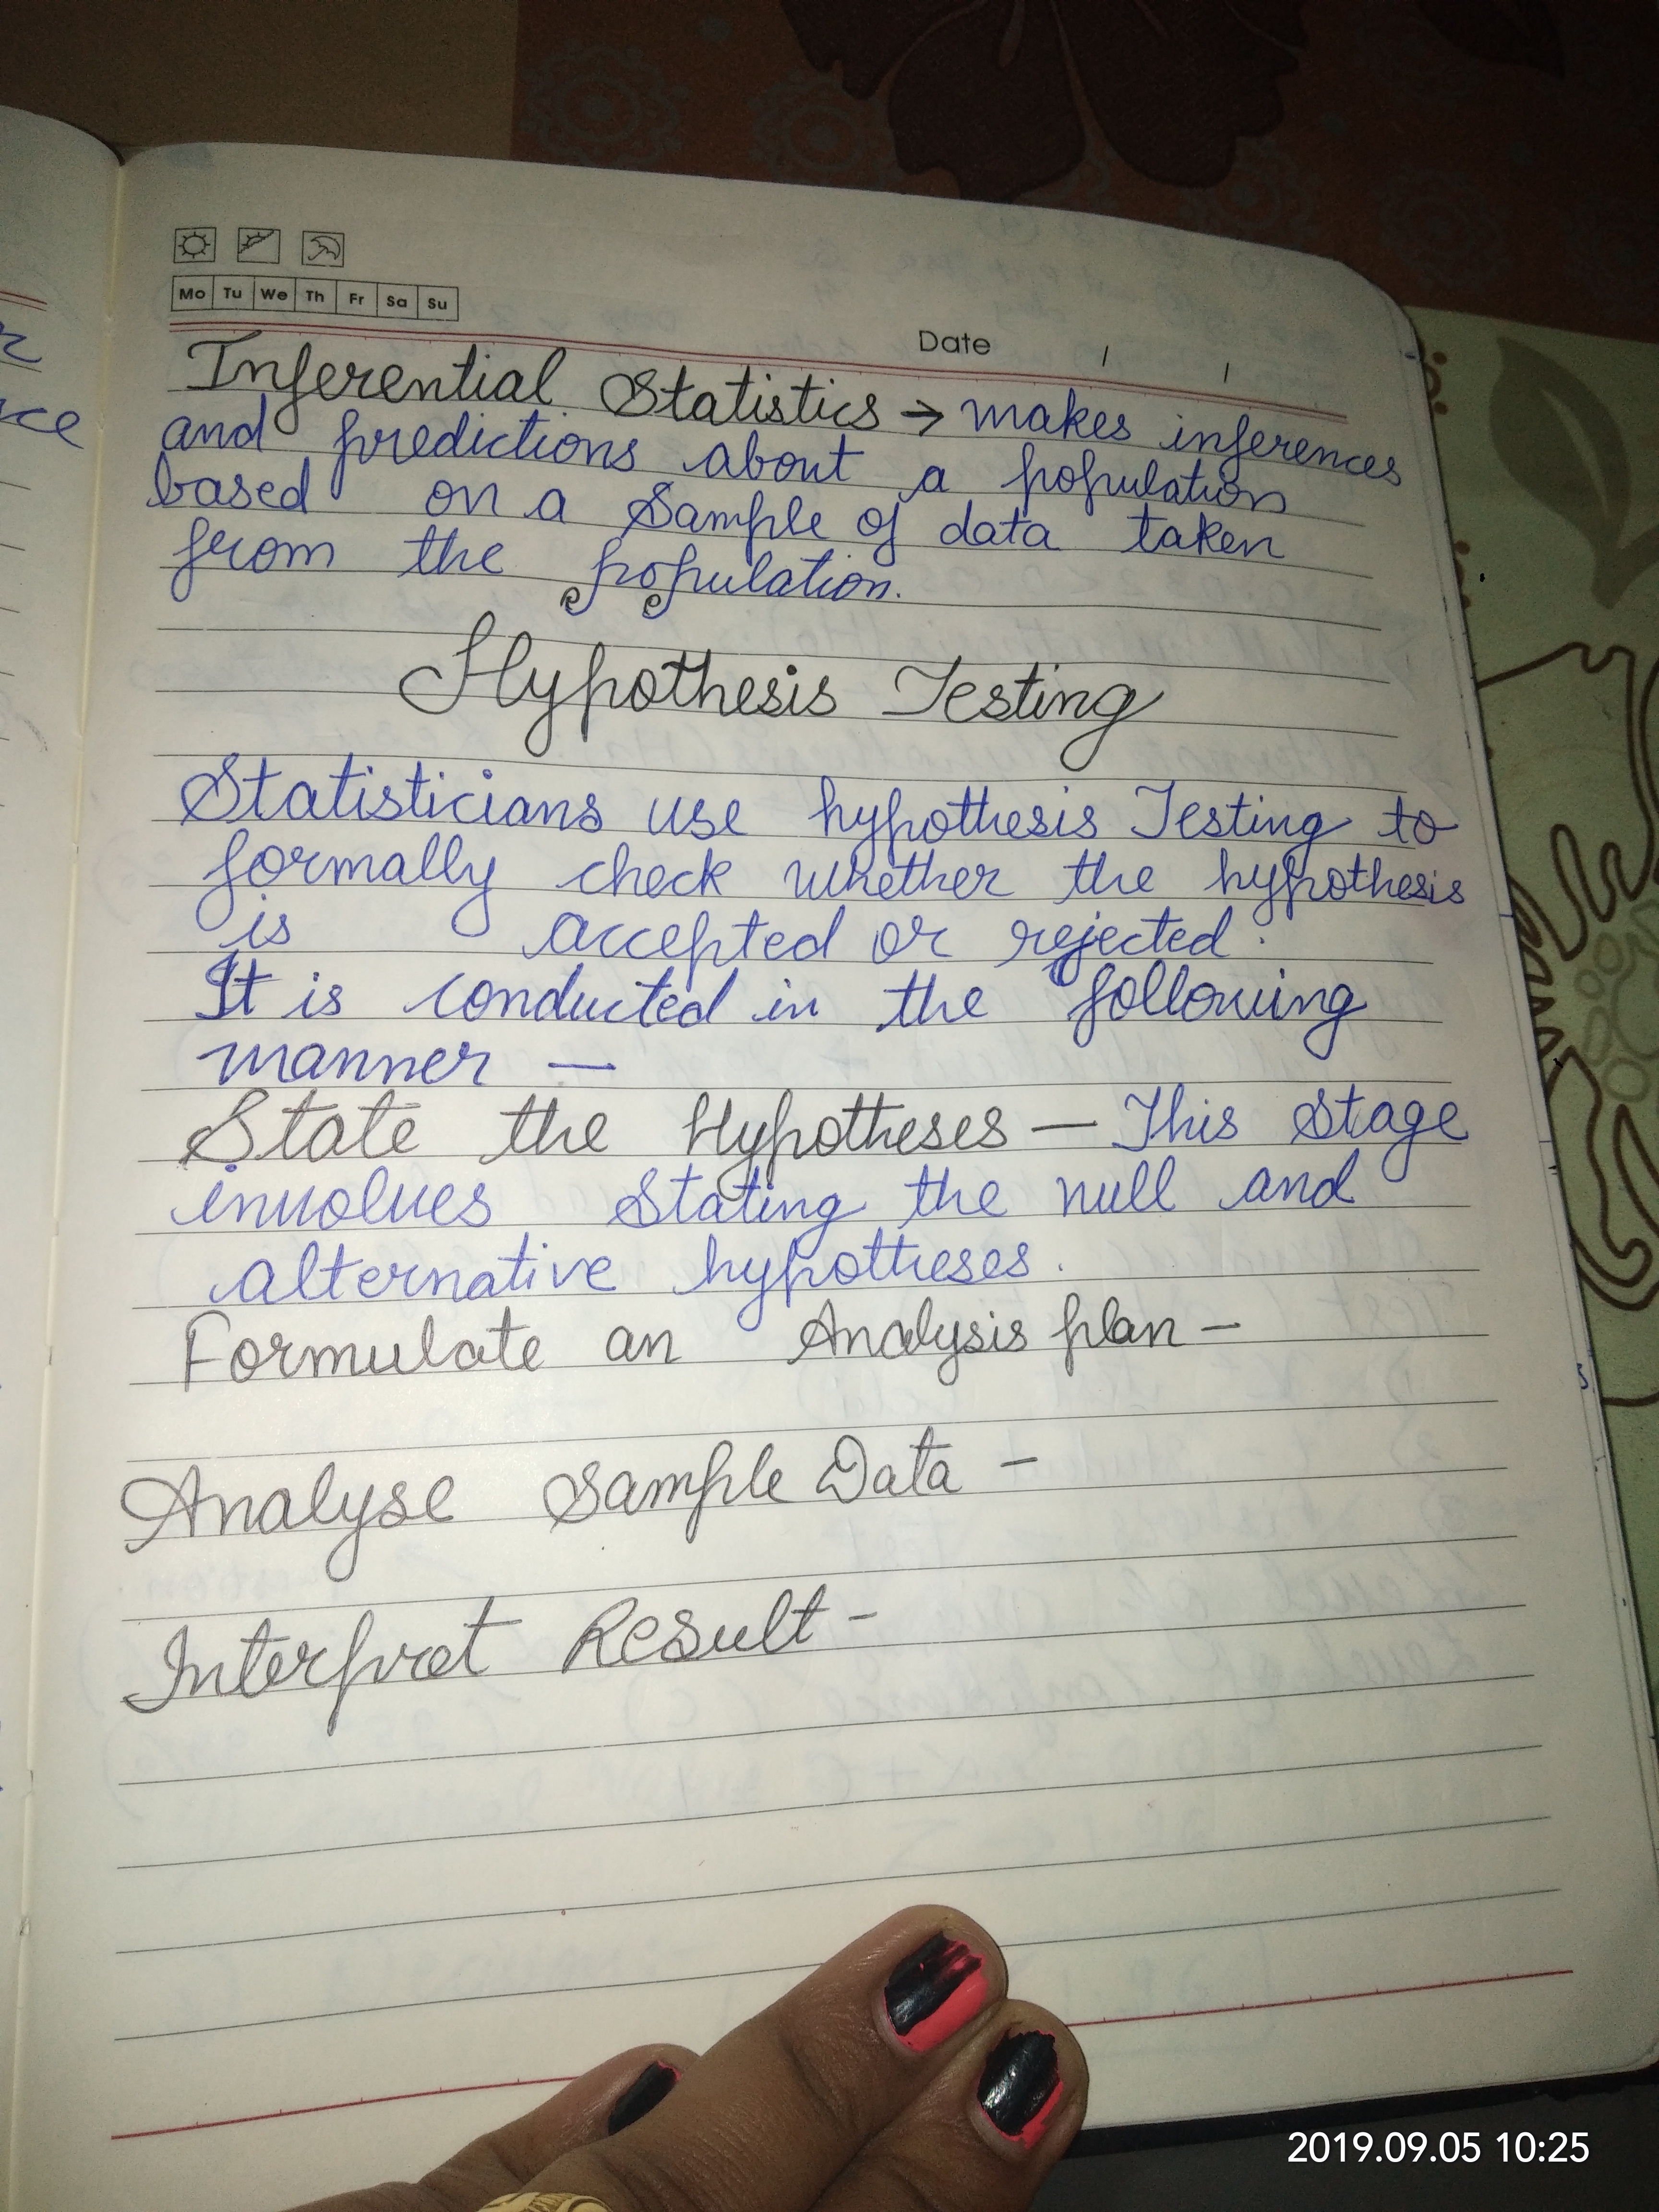 Mo Tu We Th Fr Sa Su
Date / /
Inferential Statistics → makes inferences
and predictions about a population
based on a Sample of data taken
from the population.
Hypothesis Testing
Statisticians use hypothesis Testing to
formally check whether the hypothesis
is accepted or rejected.
It is conducted in the following
manner —
State the Hypotheses — This Stage
involves Stating the null and
alternative hypotheses.
Formulate an Analysis plan -
Analyse Sample Data -
Interpret Result -
2019.09.05 10:25